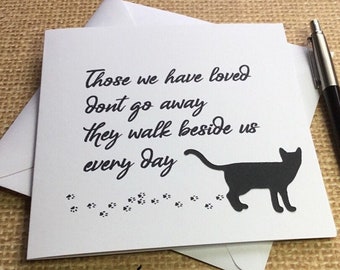 Those we have loved
dont go away
they walk beside us
every day